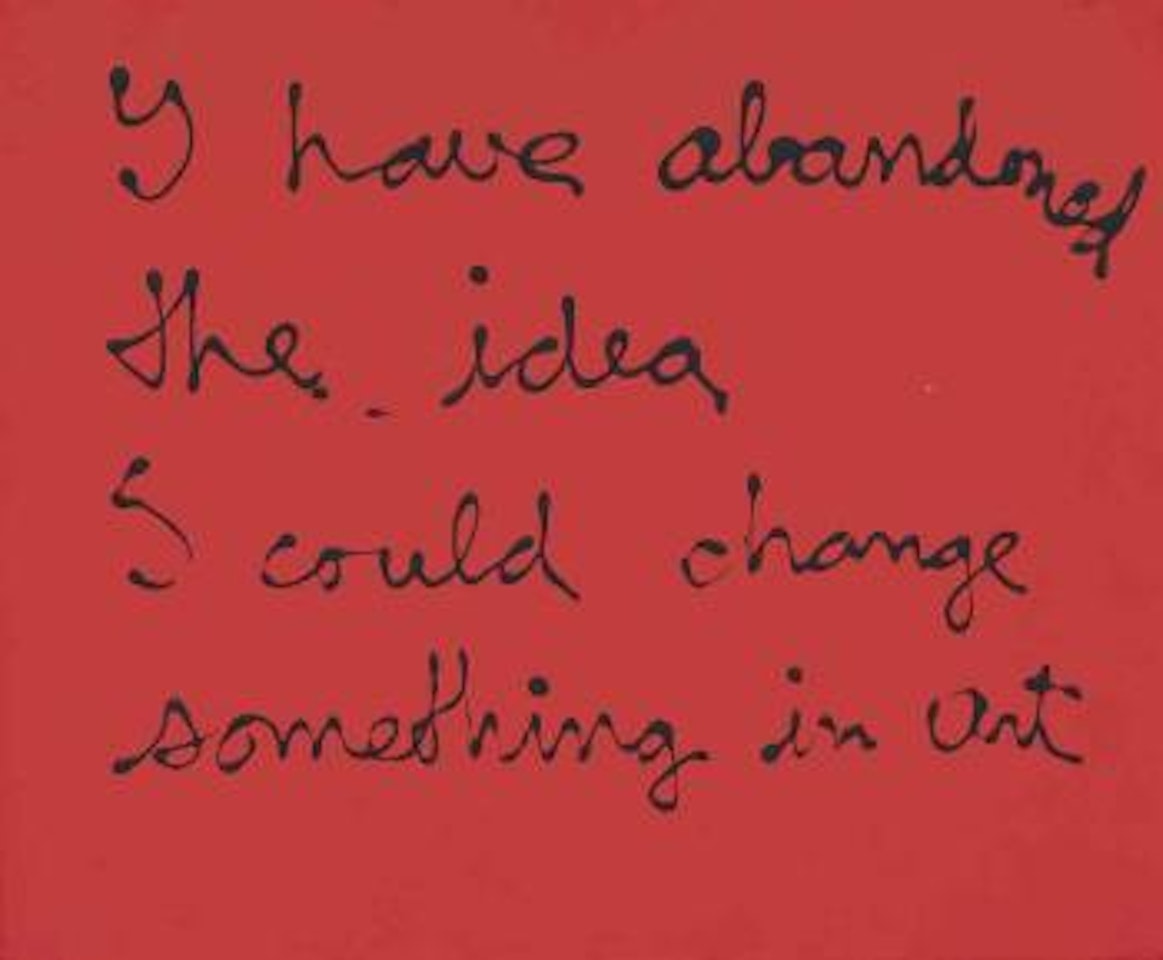 I have abandoned
the idea
I could change
something in art